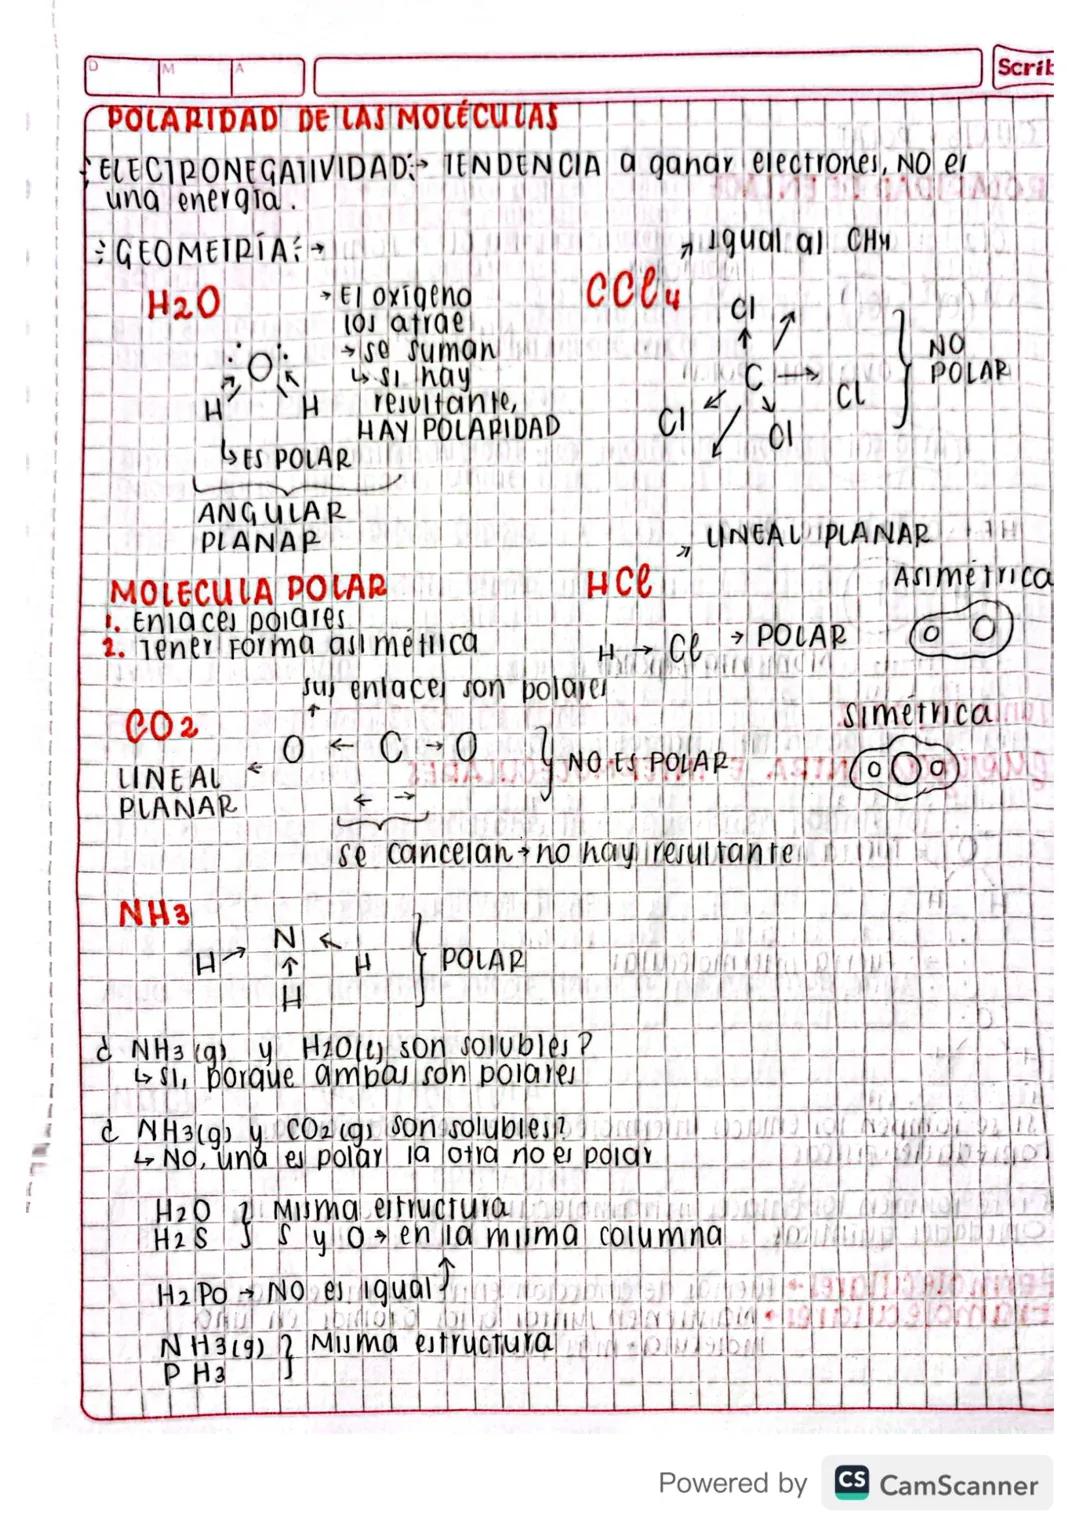 D M A
Scrib
POLARIDAD DE LAS MOLÉCULAS
ELECTRONEGATIVIDAD: → TENDENCIA a ganar electrones, NO es
una energía.
GEOMETRÍA: →
↗ Igual al CH4
H2O
→ El oxígeno
los atrae
→ se suman
↳ si hay
resultante,
HAY POLARIDAD
O
H H
↳ ES POLAR
ANGULAR
PLANAR
CCl4
Cl
C
Cl
Cl
Cl
NO
POLAR
MOLECULA POLAR
1. Enlaces polares
2. Tener forma asimétrica
↗ LINEAL PLANAR
HCl
Asimétrica
H → Cl → POLAR
sus enlaces son polares
CO2
O ← C → O
LINEAL
PLANAR
NO ES POLAR
Simétrica
← →
se cancelan → no hay resultante
NH3
N
H H
H
POLAR
¿ NH3(g) y H2O(l) son solubles?
↳ Si, porque ambas son polares
¿ NH3(g) y CO2(g) son solubles?
↳ No, una es polar la otra no es polar
H2O } Misma estructura
H2S } S y O → en la misma columna
H2Po → NO es igual
NH3(g) } Misma estructura
PH3
Powered by CS CamScanner